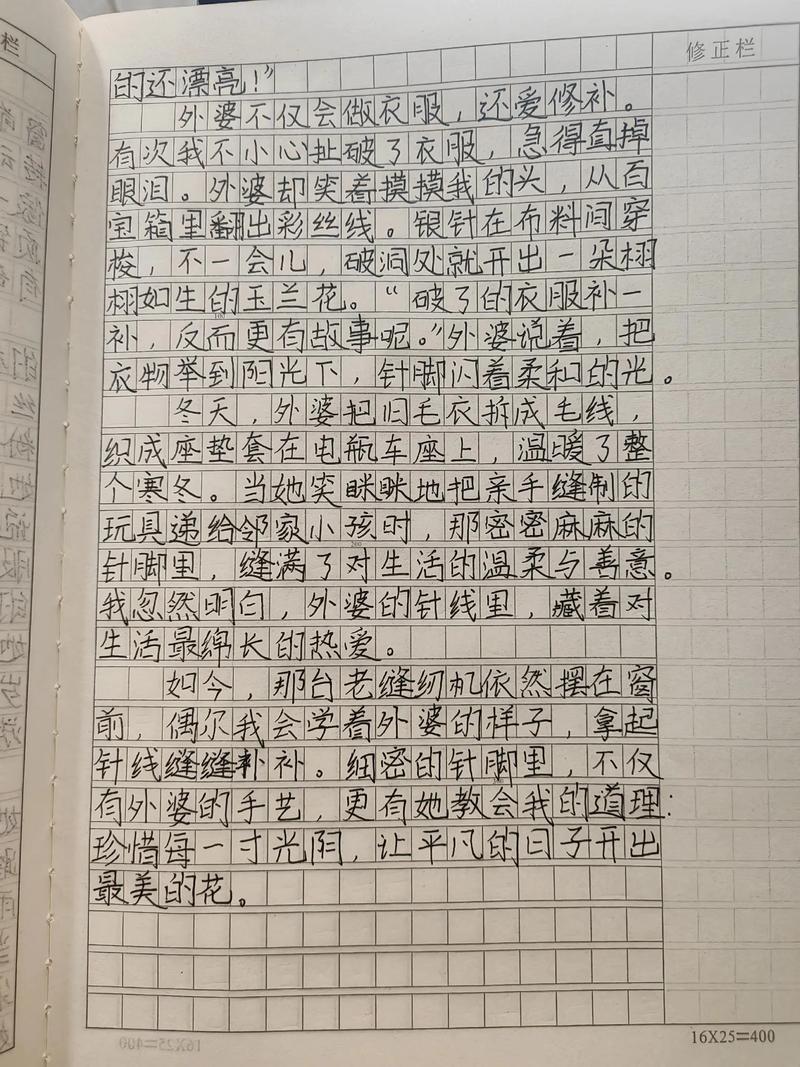 栏
修正栏
的还漂亮！”
外婆不仅会做衣服，还爱修补。
有次我不小心扯破了衣服，急得直掉
眼泪。外婆却笑着摸摸我的头，从百
宝箱里翻出彩丝线。银针在布料间穿
梭，不一会儿，破洞处就开出一朵栩
栩如生的玉兰花。“破了的衣服补一
100
补，反而更有故事呢。”外婆说着，把
衣物举到阳光下，针脚闪着柔和的光。
冬天，外婆把旧毛衣拆成毛线，
织成座垫套在电瓶车座上，温暖了整
个寒冬。当她笑眯眯地把亲手缝制的
玩具递给邻家小孩时，那密密麻麻的
200
针脚里，缝满了对生活的温柔与善意。
我忽然明白，外婆的针线里，藏着对
生活最绵长的热爱。
如今，那台老缝纫机依然摆在窗
前，偶尔我会学着外婆的样子，拿起
针线缝缝补补。细密的针脚里，不仅
有外婆的手艺，更有她教会我的道理：
珍惜每一寸光阴，让平凡的日子开出
最美的花。
16X25=400